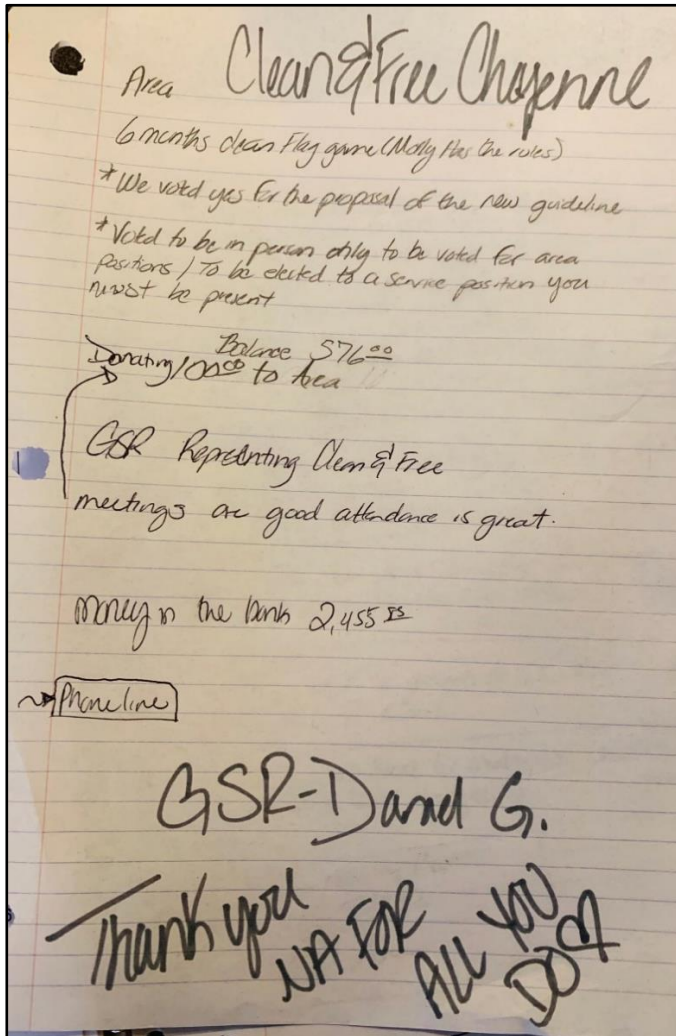 Area Clean & Free Cheyenne
6 months clean Flag game (Molly Has the rules)
* We voted yes for the proposal of the new guideline
* Voted to be in person only to be voted for area
positions / To be elected to a service position you
must be present
Balance 576.00
Donating 100.00 to Area
GSR Representing Clean & Free
meetings are good attendance is great.
money in the bank 2,455
Phoneline
GSR - G.
Thank you
NA FOR
ALL YOU
DO